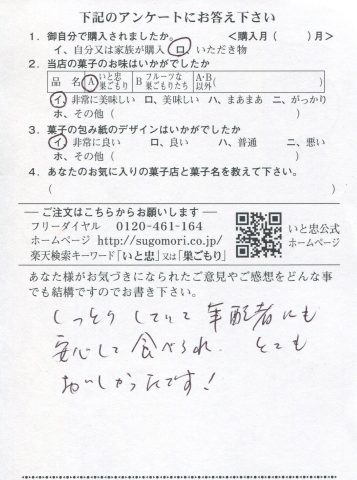 下記のアンケートにお答え下さい
1. 御自分で購入されましたか。 <購入月( )月>
イ、自分又は家族が購入 ロ、いただき物
2. 当店の菓子のお味はいかがでしたか
品 名 A いと忠 巣ごもり B フルーツな 巣ごもりたち A・B 以外( )
イ、非常に美味しい ロ、美味しい ハ、まあまあ ニ、がっかり
ホ、その他( )
3. 菓子の包み紙のデザインはいかがでしたか
イ、非常に良い ロ、良い ハ、普通 ニ、悪い
ホ、その他( )
4. あなたのお気に入りの菓子店と菓子名を教えて下さい。
( )
―ご注文はこちらからお願いします―
フリーダイヤル 0120-461-164
ホームページ http://sugomori.co.jp/
楽天検索キーワード「いと忠」又は「巣ごもり」
いと忠公式
ホームページ
あなた様がお気づきになられたご意見やご感想をどんな事
でも結構ですのでお書き下さい。
しっとりしていて年配者にも
安心して食べられ、とても
おいしかったです!